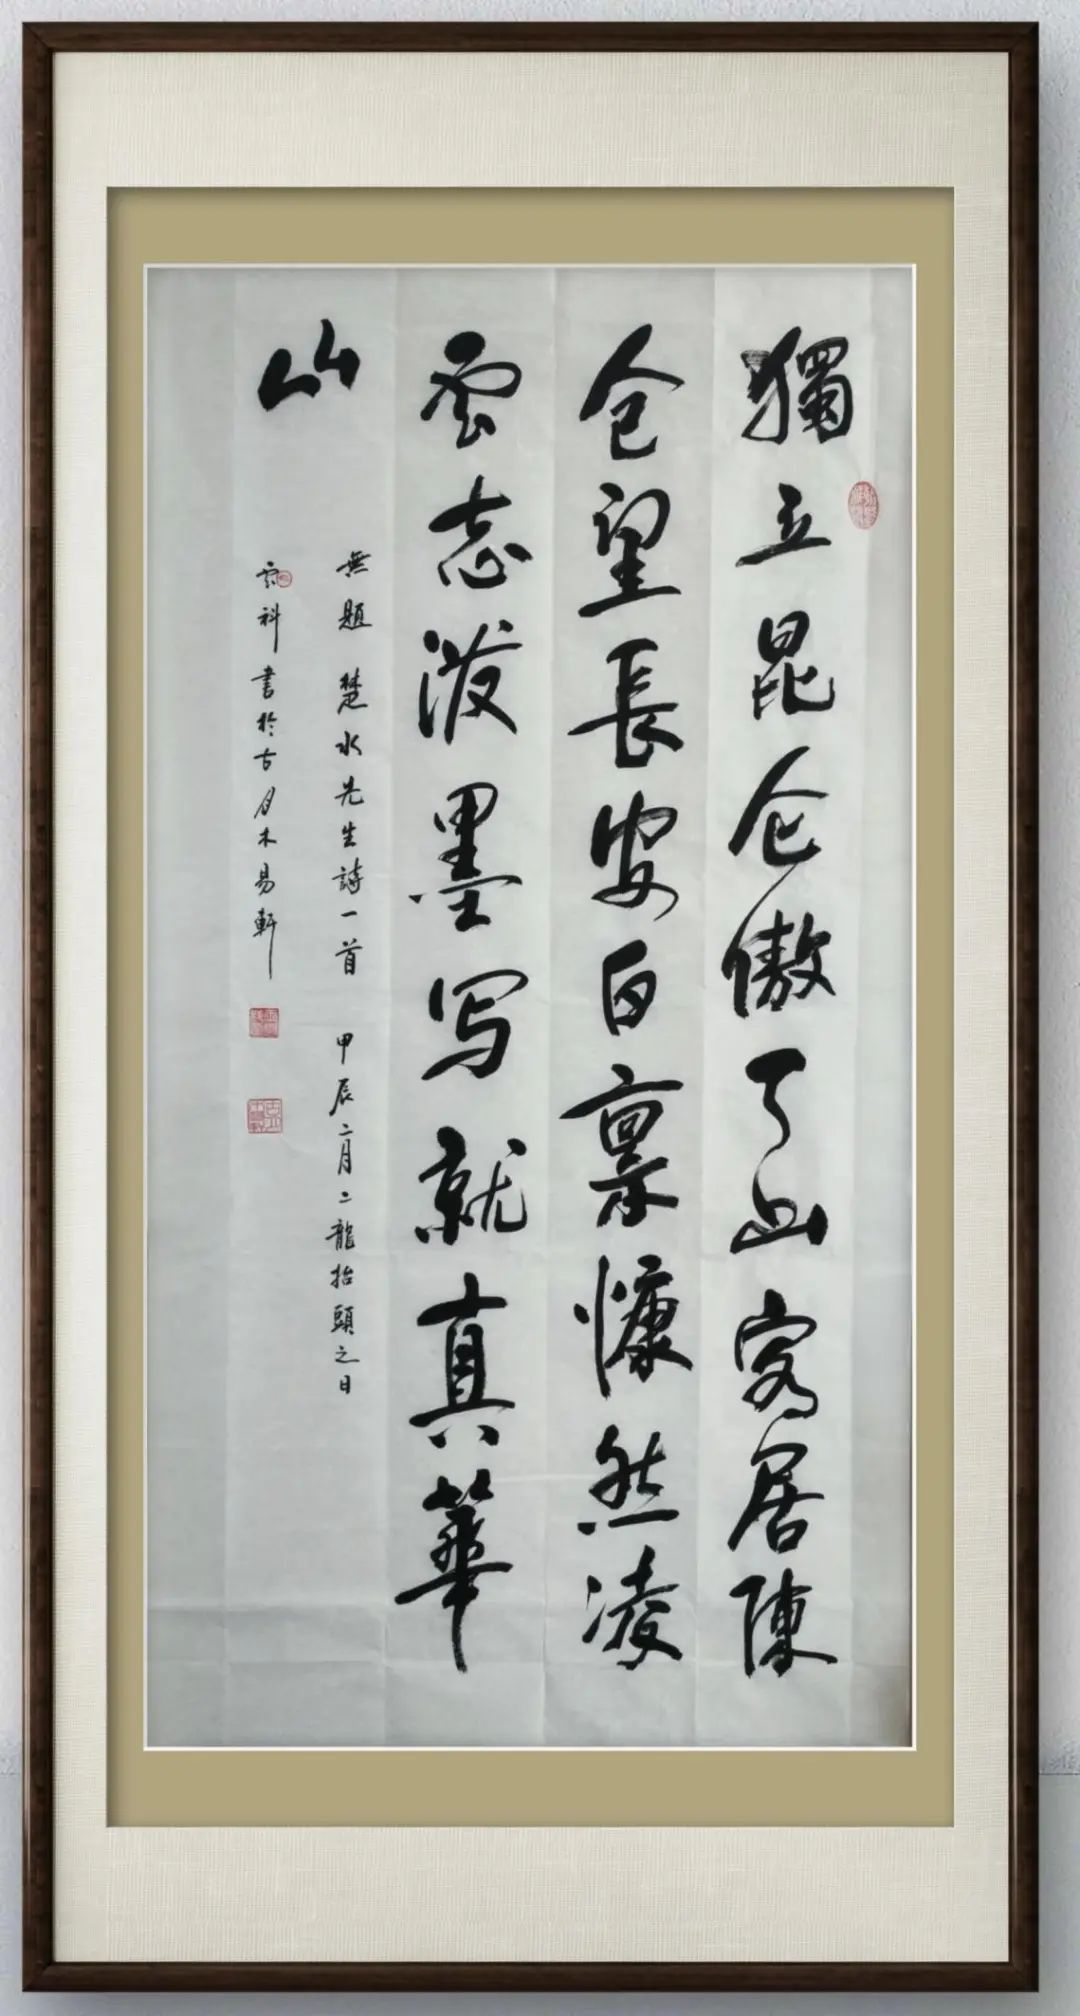 獨立昆仑傲了山客居陳
仓望長安自禀慷然凌
雲志泼墨写就真華
山
無題 楚水先生詩一首 甲辰二月二龍抬頭之日
雲科書於古月木易軒